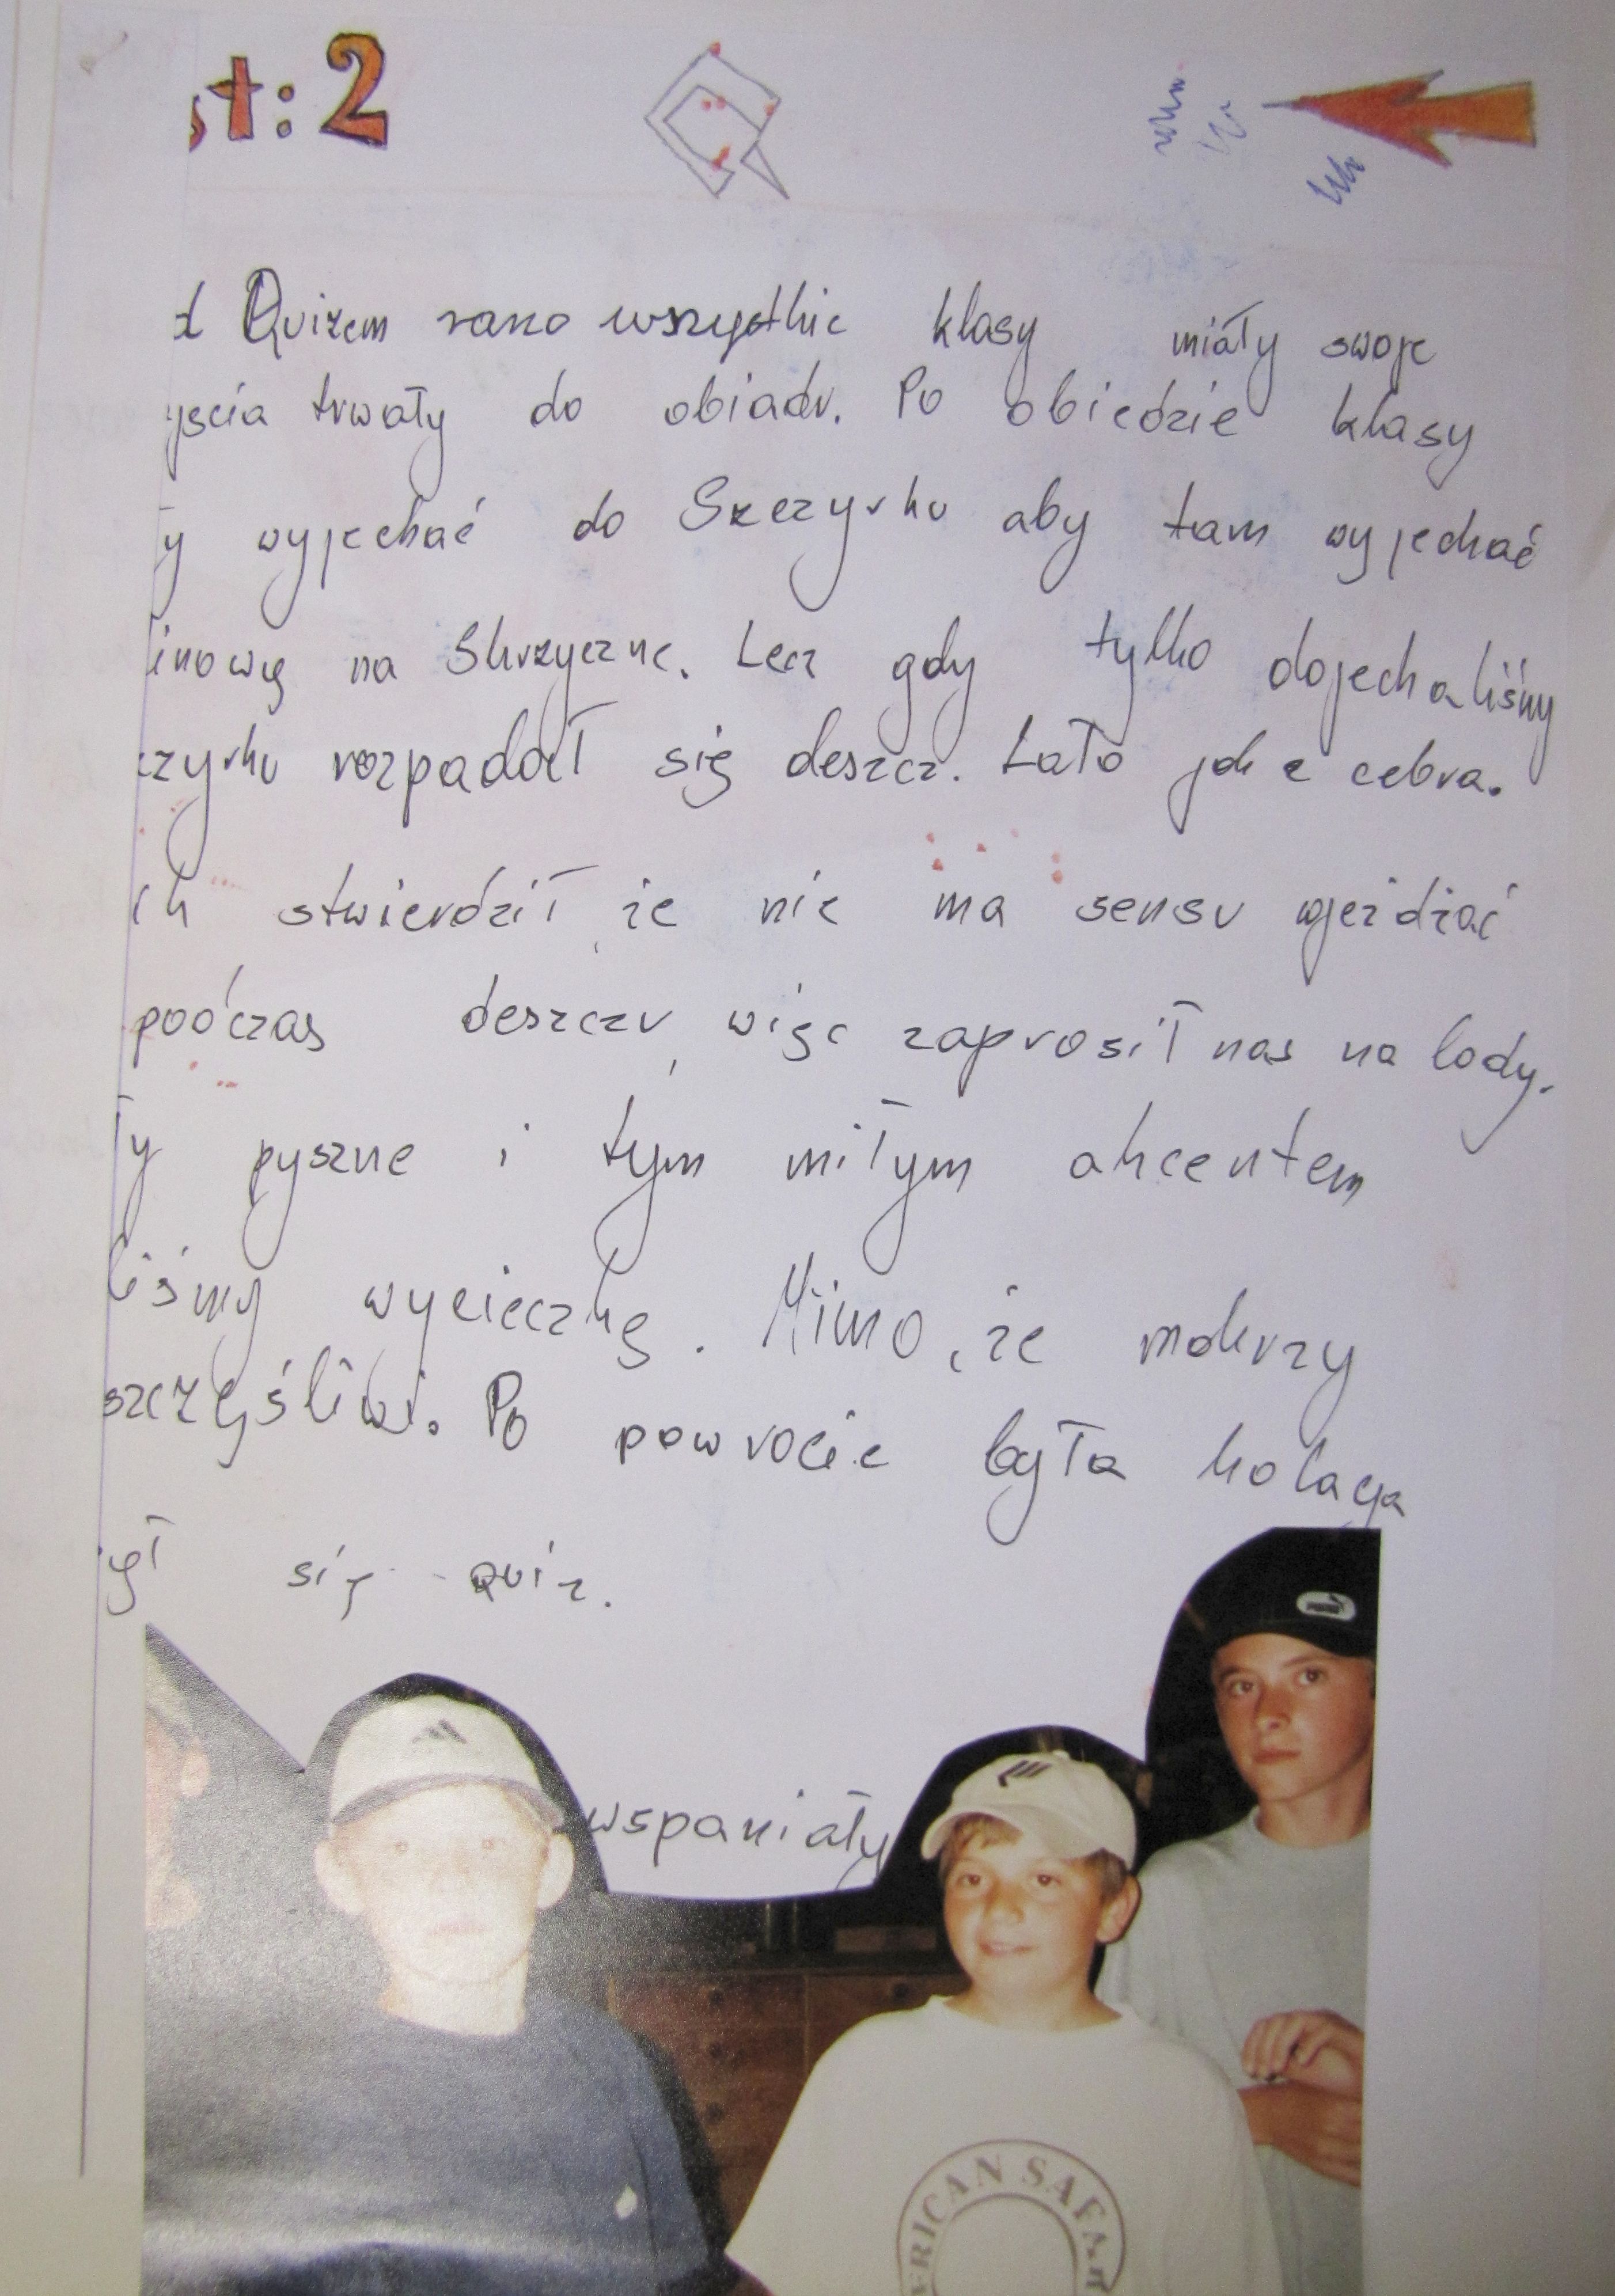 st: 2
d Quizem rano wszystkie klasy miały swoje
yścia trwały do obiadu. Po obiedzie klasy
y wyjechać do Szczyrku aby tam wyjechać
linową na Skrzyczne. Lecz gdy tylko dojechaliśmy
czyrku rozpadał się deszcz. Lało jak z cebra.
ch stwierdził, że nie ma sensu wjeżdżać
podczas deszczu, więc zaprosił nas na lody.
ły pyszne i tym miłym akcentem
liśmy wycieczkę. Mimo, że mokrzy
szczęśliwi. Po powrocie była kolacja
ył się quiz.
wspaniały
ERICAN SAFAR